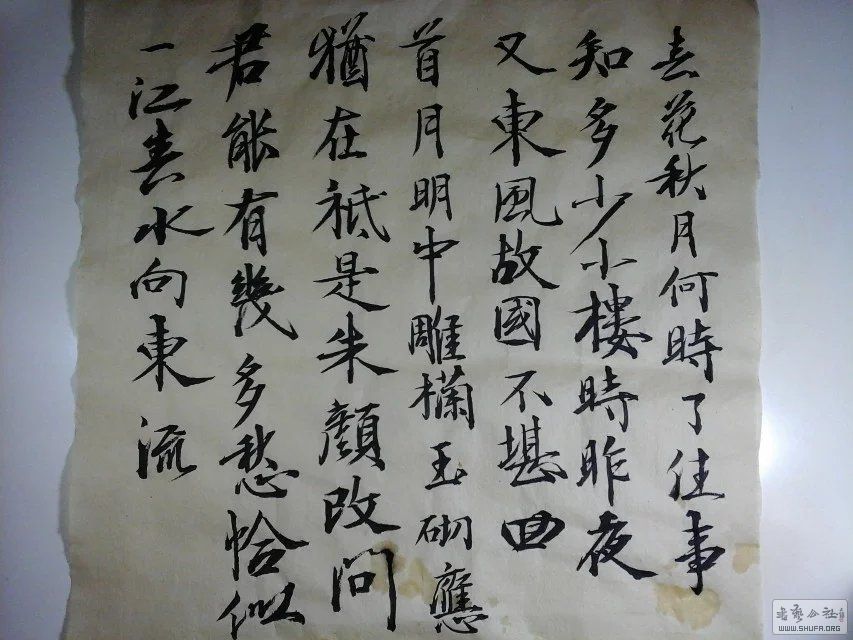 春花秋月何時了往事
知多少小樓時昨夜
又東風故國不堪回
首月明中雕欄玉砌應
猶在祗是朱顏改問
君能有幾多愁恰似
一江春水向東流
书艺公社
WWW.SHUFA.ORG